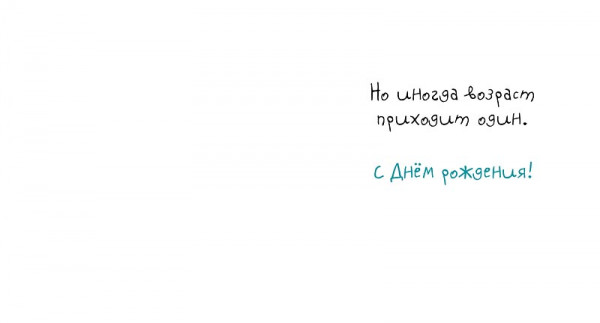 Но иногда возраст
приходит один.
С Днём рождения!